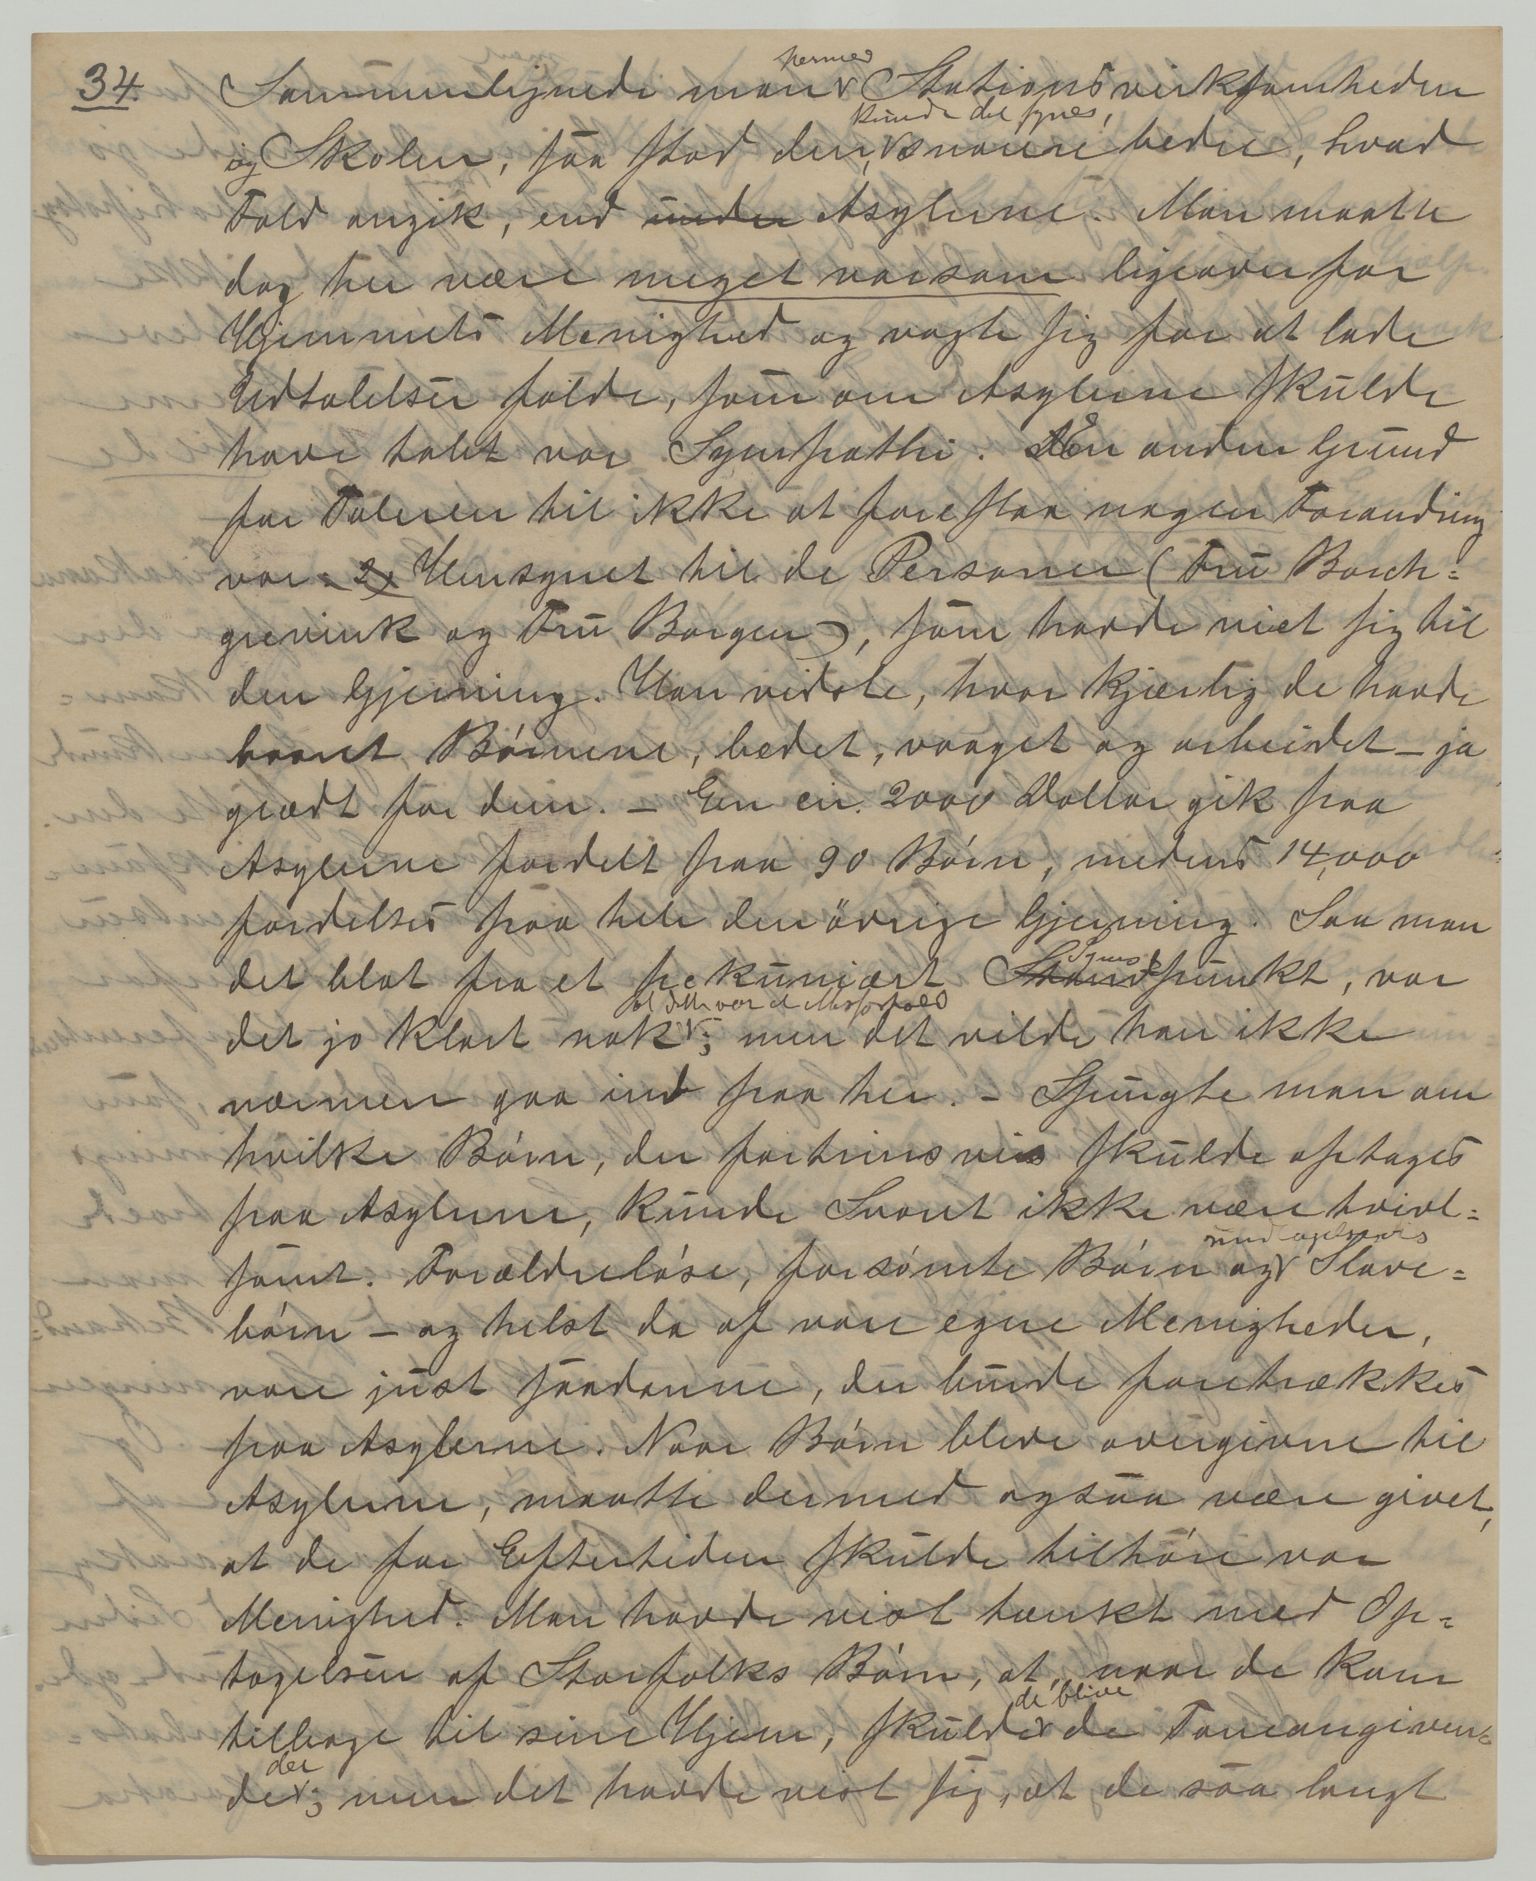 34. Sammenlignede man hermed Stationsvirksomheden
og Skolen, saa stod den, kunde det synes, snarere bedre, hvad
Told angik, end under Asylerne. Man maatte
dog her være meget varsom ligeover for
Hjemmets Menighed og vogte sig for at lade
Udtalelser falde, som om Asylerne skulde
have tabt vor Sympathi. En anden Grund
for Taleren til ikke at foreslaa nogen Forandring
var 2) Hensynet til de Personer (Fru Borch=
grevink og Fru Borgen), som havde viet sig til
den Gjerning. Han vidste, hvor kjærlig de havde
baaret Børnene, bedet, vaaget og arbeidet – ja
grædt for dem. – En 2000 Dollar gik paa
Asylerne fordelt paa 90 Børn, medens 14,000
fordeltes paa hele den övrige Gjerning. Saa man
det blot fra et pekuniært Standpunkt Synspunkt, var
det jo klart nok, at dette var et Misforhold; men det vilde han ikke
nærmere gaa ind paa her. – Spurgte man om
hvilke Børn, der fortrinsvis skulde optages
paa Asylerne, kunde Svaret ikke være tvivl=
somt. Forældreløse, forsømte Børn og undtagelsesvis Slave=
børn – og helst da af vore egne Menigheder,
vare just saadanne, der burde foretrækkes
paa Asylerne. Naar Børn bleve overgivne til
Asylerne, maatte dermed ogsaa være givet,
at de for Eftertiden skulde tilhøre vor
Menighed. Man havde vist tænkt med Op=
tagelsen af Storfolks Børn, at, naar de kom
tilbage til sine Hjem, skulde de blive de Toneangiven=
de der; men det havde vist sig, at de saa langt